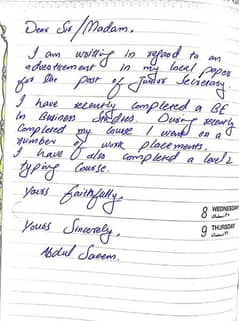 Dear Sir/Madam,
I am writing in regard to an
advertisement in my local paper
for the post of Junior Secretary.
I have recently completed a BF
In Business Studies. During recently
completed my course I went on a
number of work placements.
I have also completed a level 2
typing Course.
Yours faithfully.
Yours Sincerely,
Abdul Saeem.
8 WEDNESDAY
9 THURSDAY